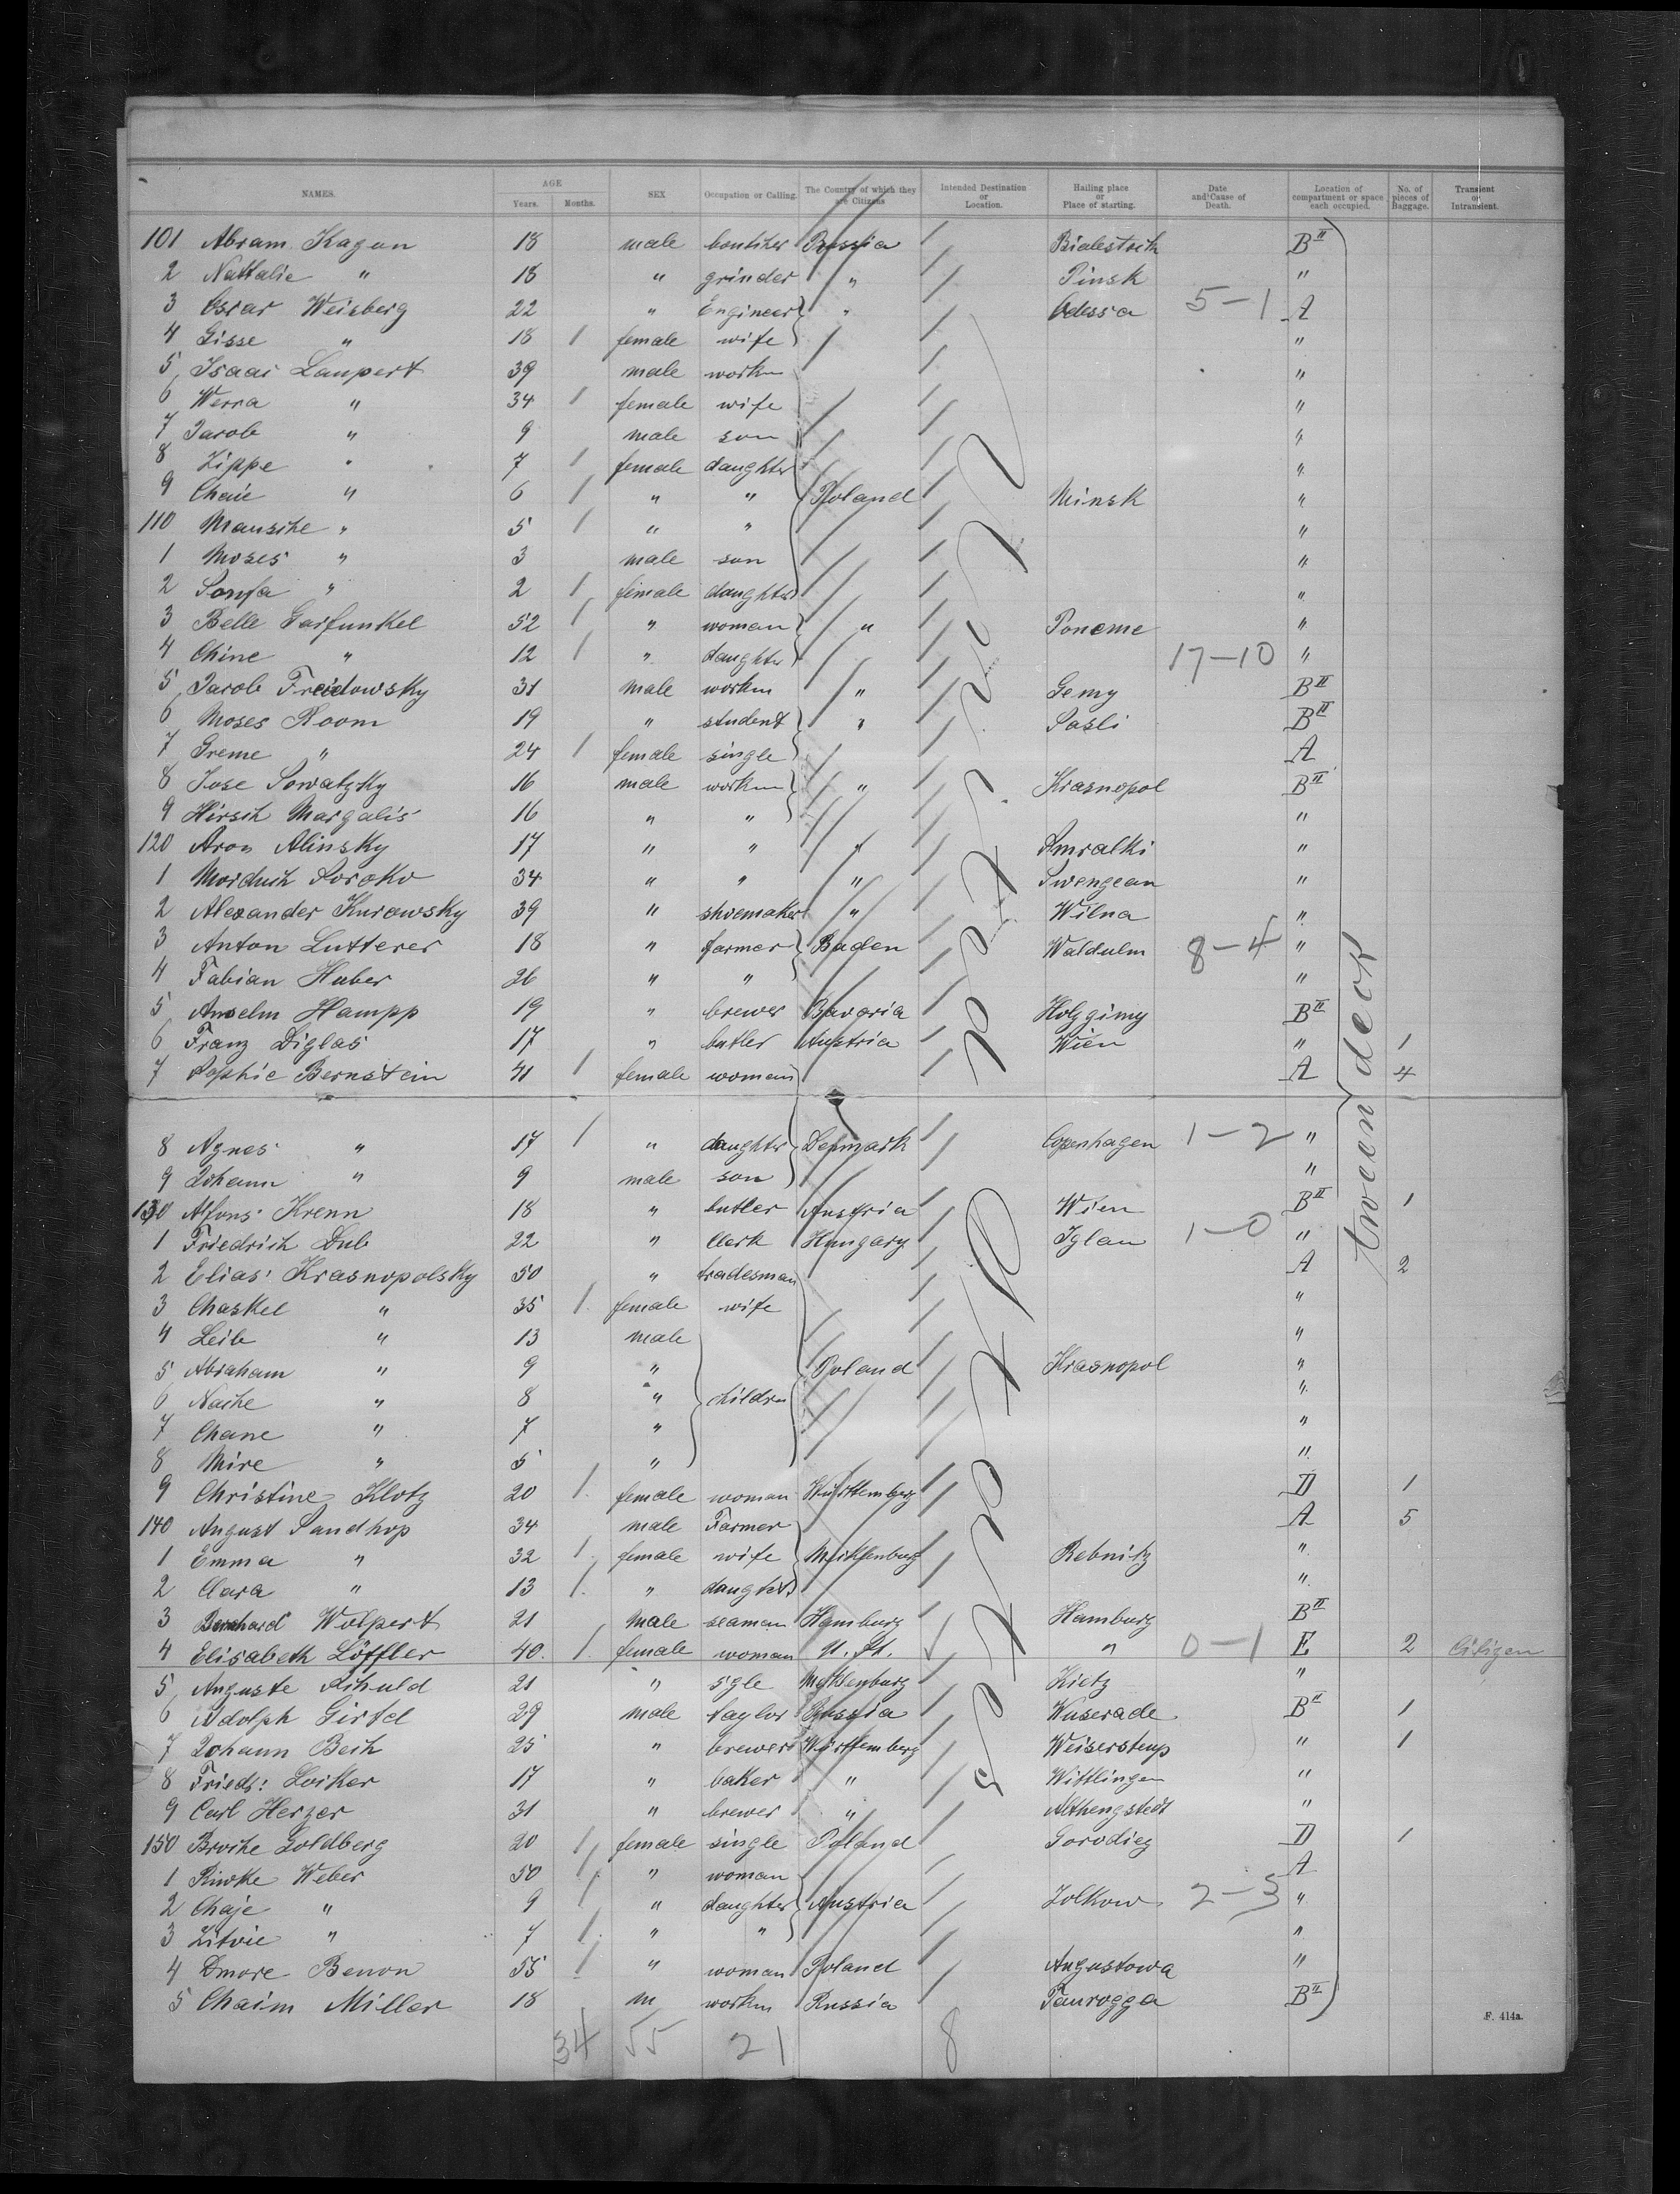 NAMES. AGE Years. Months. SEX Occupation or Calling. The Country of which they are Citizens Intended Destination or Location. Hailing place or Place of starting. Date and Cause of Death. Location of compartment or space each occupied. No. of pieces of Baggage. Transient or Intransient.
101 Abram Kagan 18 male Russia Bialestock B II
2 Nathalie " 18 " grinder " Pinsk "
3 Oscar Weisberg 22 " Engineer " Odessa 5-1 A
4 Gisse " 18 1 female wife "
5 Isaac Laupert 39 male workm "
6 Werra " 34 1 female wife "
7 Jacob " 9 male son "
8 Zippe " 7 1 female daughter "
9 Chaie " 6 1 " " Poland Minsk "
110 Mausche " 5 1 " " "
1 Moses " 3 male son "
2 Sonja " 2 1 female daughter "
3 Belle Garfunkel 52 1 " woman " Poneme "
4 Chine " 12 1 " daughter 17-10 "
5 Jacob Freidowsky 31 male workm " Gemy B II
6 Moses Room 19 " student " Sasli B II
7 Greme " 24 1 female single A
8 Jose Sowatzky 16 male workm " Krasnopol B II
9 Hirsch Margalis 16 " " "
120 Aron Alinsky 17 " " " "
1 Morduch Soroko 34 " " " Swengean "
2 Alexander Kurawsky 39 " shoemaker " Wilna "
3 Anton Lutterer 18 " farmer Baden Waldulm 8-4 "
4 Fabian Huber 26 " " "
5 Anselm Hampp 19 " brewer Bavaria B II
6 Franz Diglas 17 " butler Austria Wien " 1
7 Sophie Bernstein 41 1 female woman A 4
8 Agnes " 17 1 " daughter Denmark Copenhagen 1-2 "
9 Johann " 9 male son "
130 Alfons Krenn 18 " butler Austria Wien B II 1
1 Friedrich Dub 22 " Clerk Hungary Iglau 1-0 "
2 Elias Krasnopolsky 50 " tradesman A 2
3 Chaskel " 35 1 female wife "
4 Leib " 13 male "
5 Abraham " 9 " Poland Krasnopol "
6 Nache " 8 " children "
7 Chane " 7 " "
8 Mire " 5 " "
9 Christine Klotz 20 1 female woman Württemberg D 1
140 August Sandhop 34 male Farmer A 5
1 Emma " 32 1 female wife Mecklenburg Rebnitz "
2 Clara " 13 1 " daugter "
3 Bernhard Wolpert 21 Male seaman Hamburg Hamburg B II
4 Elisabeth Löffler 40 1 female woman U. St. " 0-1 E 2 Citizen
5 Auguste 21 " sgle Mecklenburg Kietz "
6 Adolph Girtel 29 male taylor Russia Wuserade B II 1
7 Johann Beck 25 " brewer Württemberg " 1
8 Friedr: 17 " baker " Wittlingen "
9 Carl Herzer 31 " brewer " Althengstedt "
150 Broche Goldberg 20 1 female single Poland Gorodiez D 1
1 Riwke Weber 50 1 " woman A
2 Chaje " 9 1 " daughter Austria Zolkow 2-3 "
3 Zitvie " 7 1 " " "
4 Dmore Benon 55 1 " woman Poland Augustowa "
5 Chaim Miller 18 m workm Russia Taurogga B II
tween deck
34 55 21 8
F. 414a.